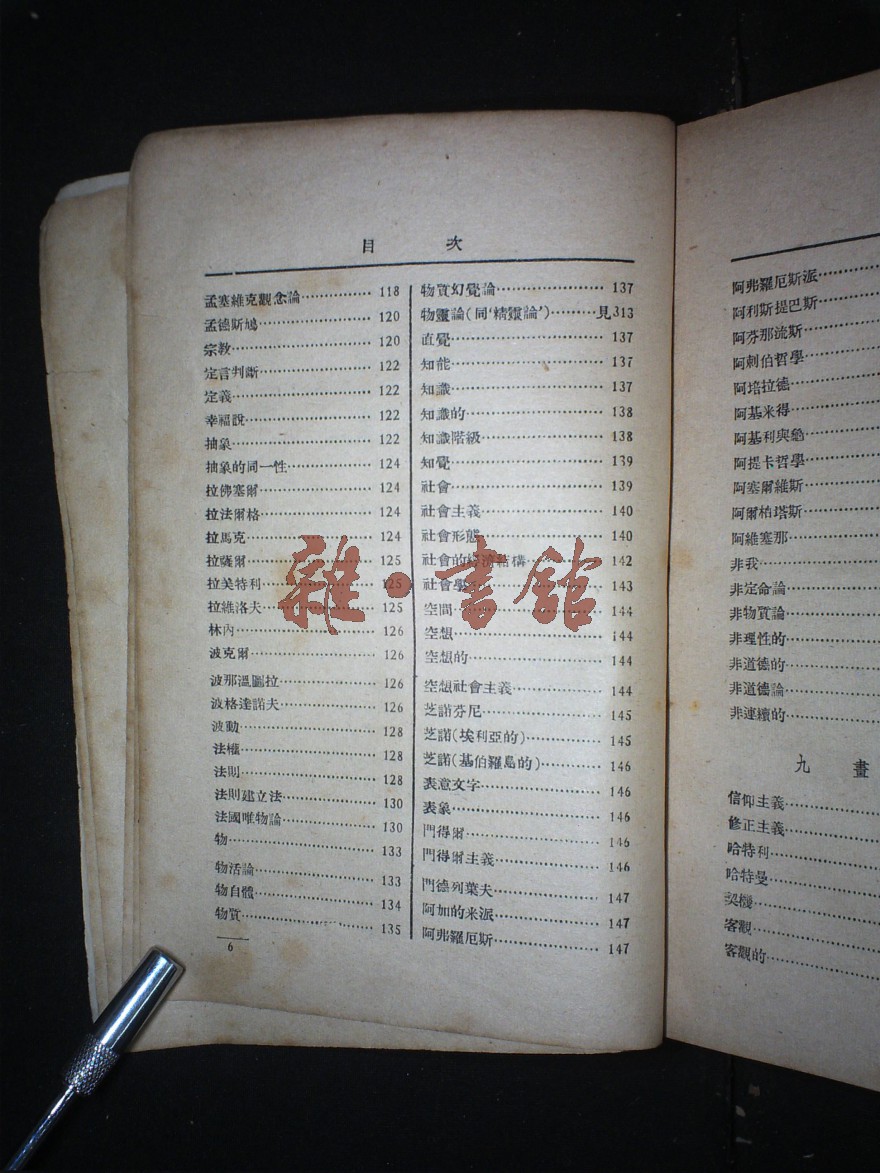 目 次
孟塞維克觀念論 118
孟德斯鳩 120
宗教 120
定言判斷 122
定義 122
幸福說 122
抽象 122
抽象的同一性 124
拉佛塞爾 124
拉法爾格 124
拉馬克 124
拉薩爾 125
拉美特利 125
拉維洛夫 125
林內 126
波克爾 126
波那溫圖拉 126
波格達諾夫 126
波動 128
法權 128
法則 128
法則建立法 130
法國唯物論 130
物 133
物活論 133
物自體 134
物質 135
6
物質幻覺論 137
物靈論(同‘精靈論’) 見313
直覺 137
知能 137
知識 137
知識的 138
知識階級 138
知覺 139
社會 139
社會主義 140
社會形態 140
社會的經濟結構 142
社會學 143
空間 144
空想 144
空想的 144
空想社會主義 144
芝諾芬尼 145
芝諾(埃利亞的) 145
芝諾(基伯羅島的) 146
表意文字 146
表象 146
門得爾 146
門得爾主義 146
門德列葉夫 147
阿加的米派 147
阿弗羅厄斯 147
雜·書館
阿弗羅厄斯派
阿利斯提巴斯
阿芬那流斯
阿剌伯哲學
阿培拉德
阿基米得
阿基利與龜
阿提卡哲學
阿塞爾維斯
阿爾柏塔斯
阿維塞那
非我
非定命論
非物質論
非理性的
非道德的
非道德論
非連續的
九 畫
信仰主義
修正主義
哈特利
哈特曼
契機
客觀
客觀的